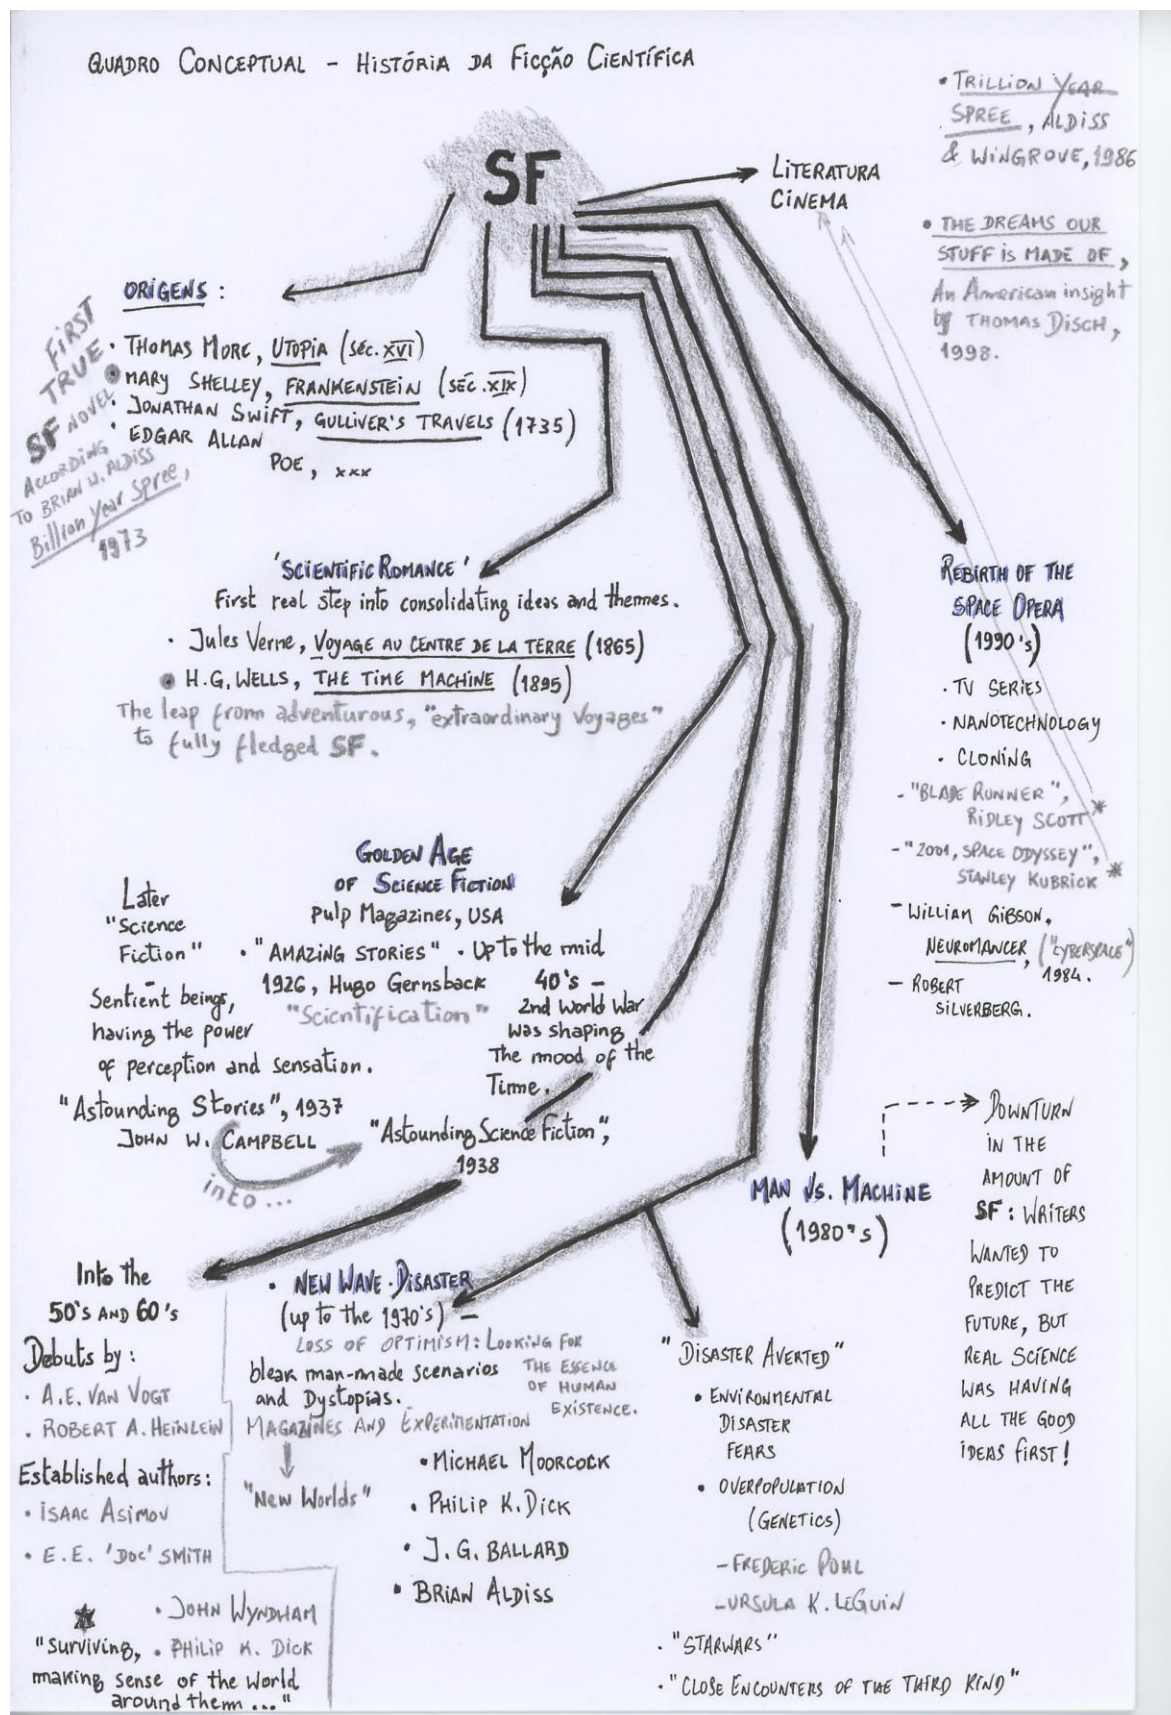 QUADRO CONCEPTUAL - HISTÓRIA DA FICÇÃO CIENTÍFICA
• TRILLION YEAR
SPREE, ALDISS
& WINGROVE, 1986
SF
LITERATURA
CINEMA
• THE DREAMS OUR
STUFF IS MADE OF,
An American insight
by THOMAS DISCH,
1998.
ORIGENS:
• THOMAS MORE, UTOPIA (SÉC. XVI)
• MARY SHELLEY, FRANKENSTEIN (SÉC. XIX)
• JONATHAN SWIFT, GULLIVER'S TRAVELS (1735)
• EDGAR ALLAN
POE, xxx
FIRST
TRUE
SF NOVEL
ACCORDING
TO BRIAN W. ALDISS
Billion Year Spree,
1973
'SCIENTIFIC ROMANCE'
First real step into consolidating ideas and themes.
• Jules Verne, VOYAGE AU CENTRE DE LA TERRE (1865)
• H.G. WELLS, THE TIME MACHINE (1895)
The leap from adventurous, "extraordinary Voyages"
to fully fledged SF.
REBIRTH OF THE
SPACE OPERA
(1990's)
• TV SERIES
• NANOTECHNOLOGY
• CLONING
- "BLADE RUNNER",
RIDLEY SCOTT *
- "2001, SPACE ODYSSEY",
STANLEY KUBRICK *
- WILLIAM GIBSON,
NEUROMANCER, ("CYBERSPACE")
1984.
- ROBERT
SILVERBERG.
GOLDEN AGE
OF SCIENCE FICTION
Pulp Magazines, USA
• "AMAZING STORIES"
1926, Hugo Gernsback
"Scientification"
• Up to the mid
40's -
2nd World War
was shaping
The mood of the
Time.
Later
"Science
Fiction"
-
Sentient beings,
having the power
of perception and sensation.
"Astounding Stories", 1937
JOHN W. CAMPBELL
into...
"Astounding Science Fiction",
1938
MAN VS. MACHINE
(1980's)
DOWNTURN
IN THE
AMOUNT OF
SF: WRITERS
WANTED TO
PREDICT THE
FUTURE, BUT
REAL SCIENCE
WAS HAVING
ALL THE GOOD
IDEAS FIRST!
Into the
50's AND 60's
Debuts by:
• A.E. VAN VOGT
• ROBERT A. HEINLEIN
Established authors:
• ISAAC ASIMOV
• E.E. 'DOC' SMITH
• JOHN WYNDHAM
• PHILIP K. DICK
"Surviving,
making sense of the World
around them..."
• NEW WAVE • DISASTER
(up to the 1970's) -
LOSS OF OPTIMISM: LOOKING FOR
THE ESSENCE
OF HUMAN
EXISTENCE.
bleak man-made scenarios
and Dystopias.
MAGAZINES AND EXPERIMENTATION
"New Worlds"
• MICHAEL MOORCOCK
• PHILIP K. DICK
• J.G. BALLARD
• BRIAN ALDISS
"DISASTER AVERTED"
• ENVIRONMENTAL
DISASTER
FEARS
• OVERPOPULATION
(GENETICS)
- FREDERIC POHL
- URSULA K. LEGUIN
• "STARWARS"
• "CLOSE ENCOUNTERS OF THE THIRD KIND"